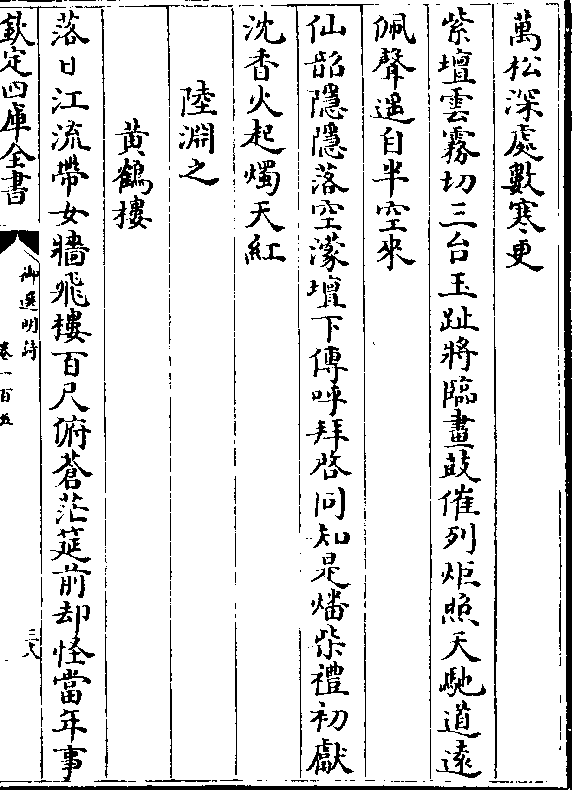 萬松深處數寒更
紫壇雲霧切三台玉趾將臨畫鼓催列炬照天馳道遠
佩聲遥自半空來
仙韶隱隱落空濛壇下傳呼拜啓同知是燔柴禮初獻
沈香火起燭天紅
陸淵之
黄鶴樓
落日江流帶女牆飛樓百尺俯蒼茫筵前却怪當年事
欽定四庫全書
御選明詩
卷一百五
三八